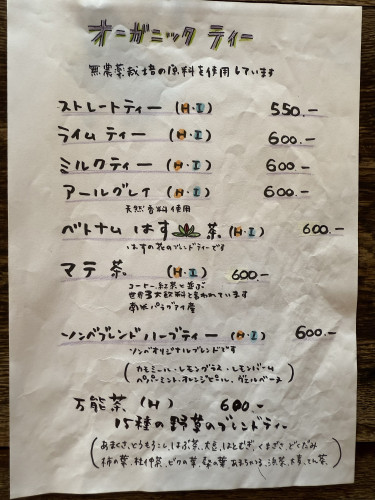 オーガニック ティー
無農薬栽培の原料を使用しています
ストレートティー (H・I) 550.-
ライム ティー (H・I) 600.-
ミルクティー (H・I) 600.-
アールグレイ (H・I) 600.-
天然香料使用
ベトナム はす 茶 (H・I) 600.-
はすの花のブレンドティーです
マテ 茶 (H・I) 600.-
コーヒー、紅茶と並ぶ
世界3大飲料と言われています
南米パラグアイ産
ソンベブレンドハーブティー (H・I) 600.-
ソンベオリジナルブレンドです
(カモミール・レモングラス・レモンバーム
ペパーミント・オレンジピール、ヴェルベーヌ)
万能茶 (H) 600.-
15種の野草のブレンドティー
(あまくさ、とうもろこし、はぶ茶、大麦、はとむぎ、くまざさ、どくだみ
柿の葉、杜仲茶、ビワの葉、桑の葉